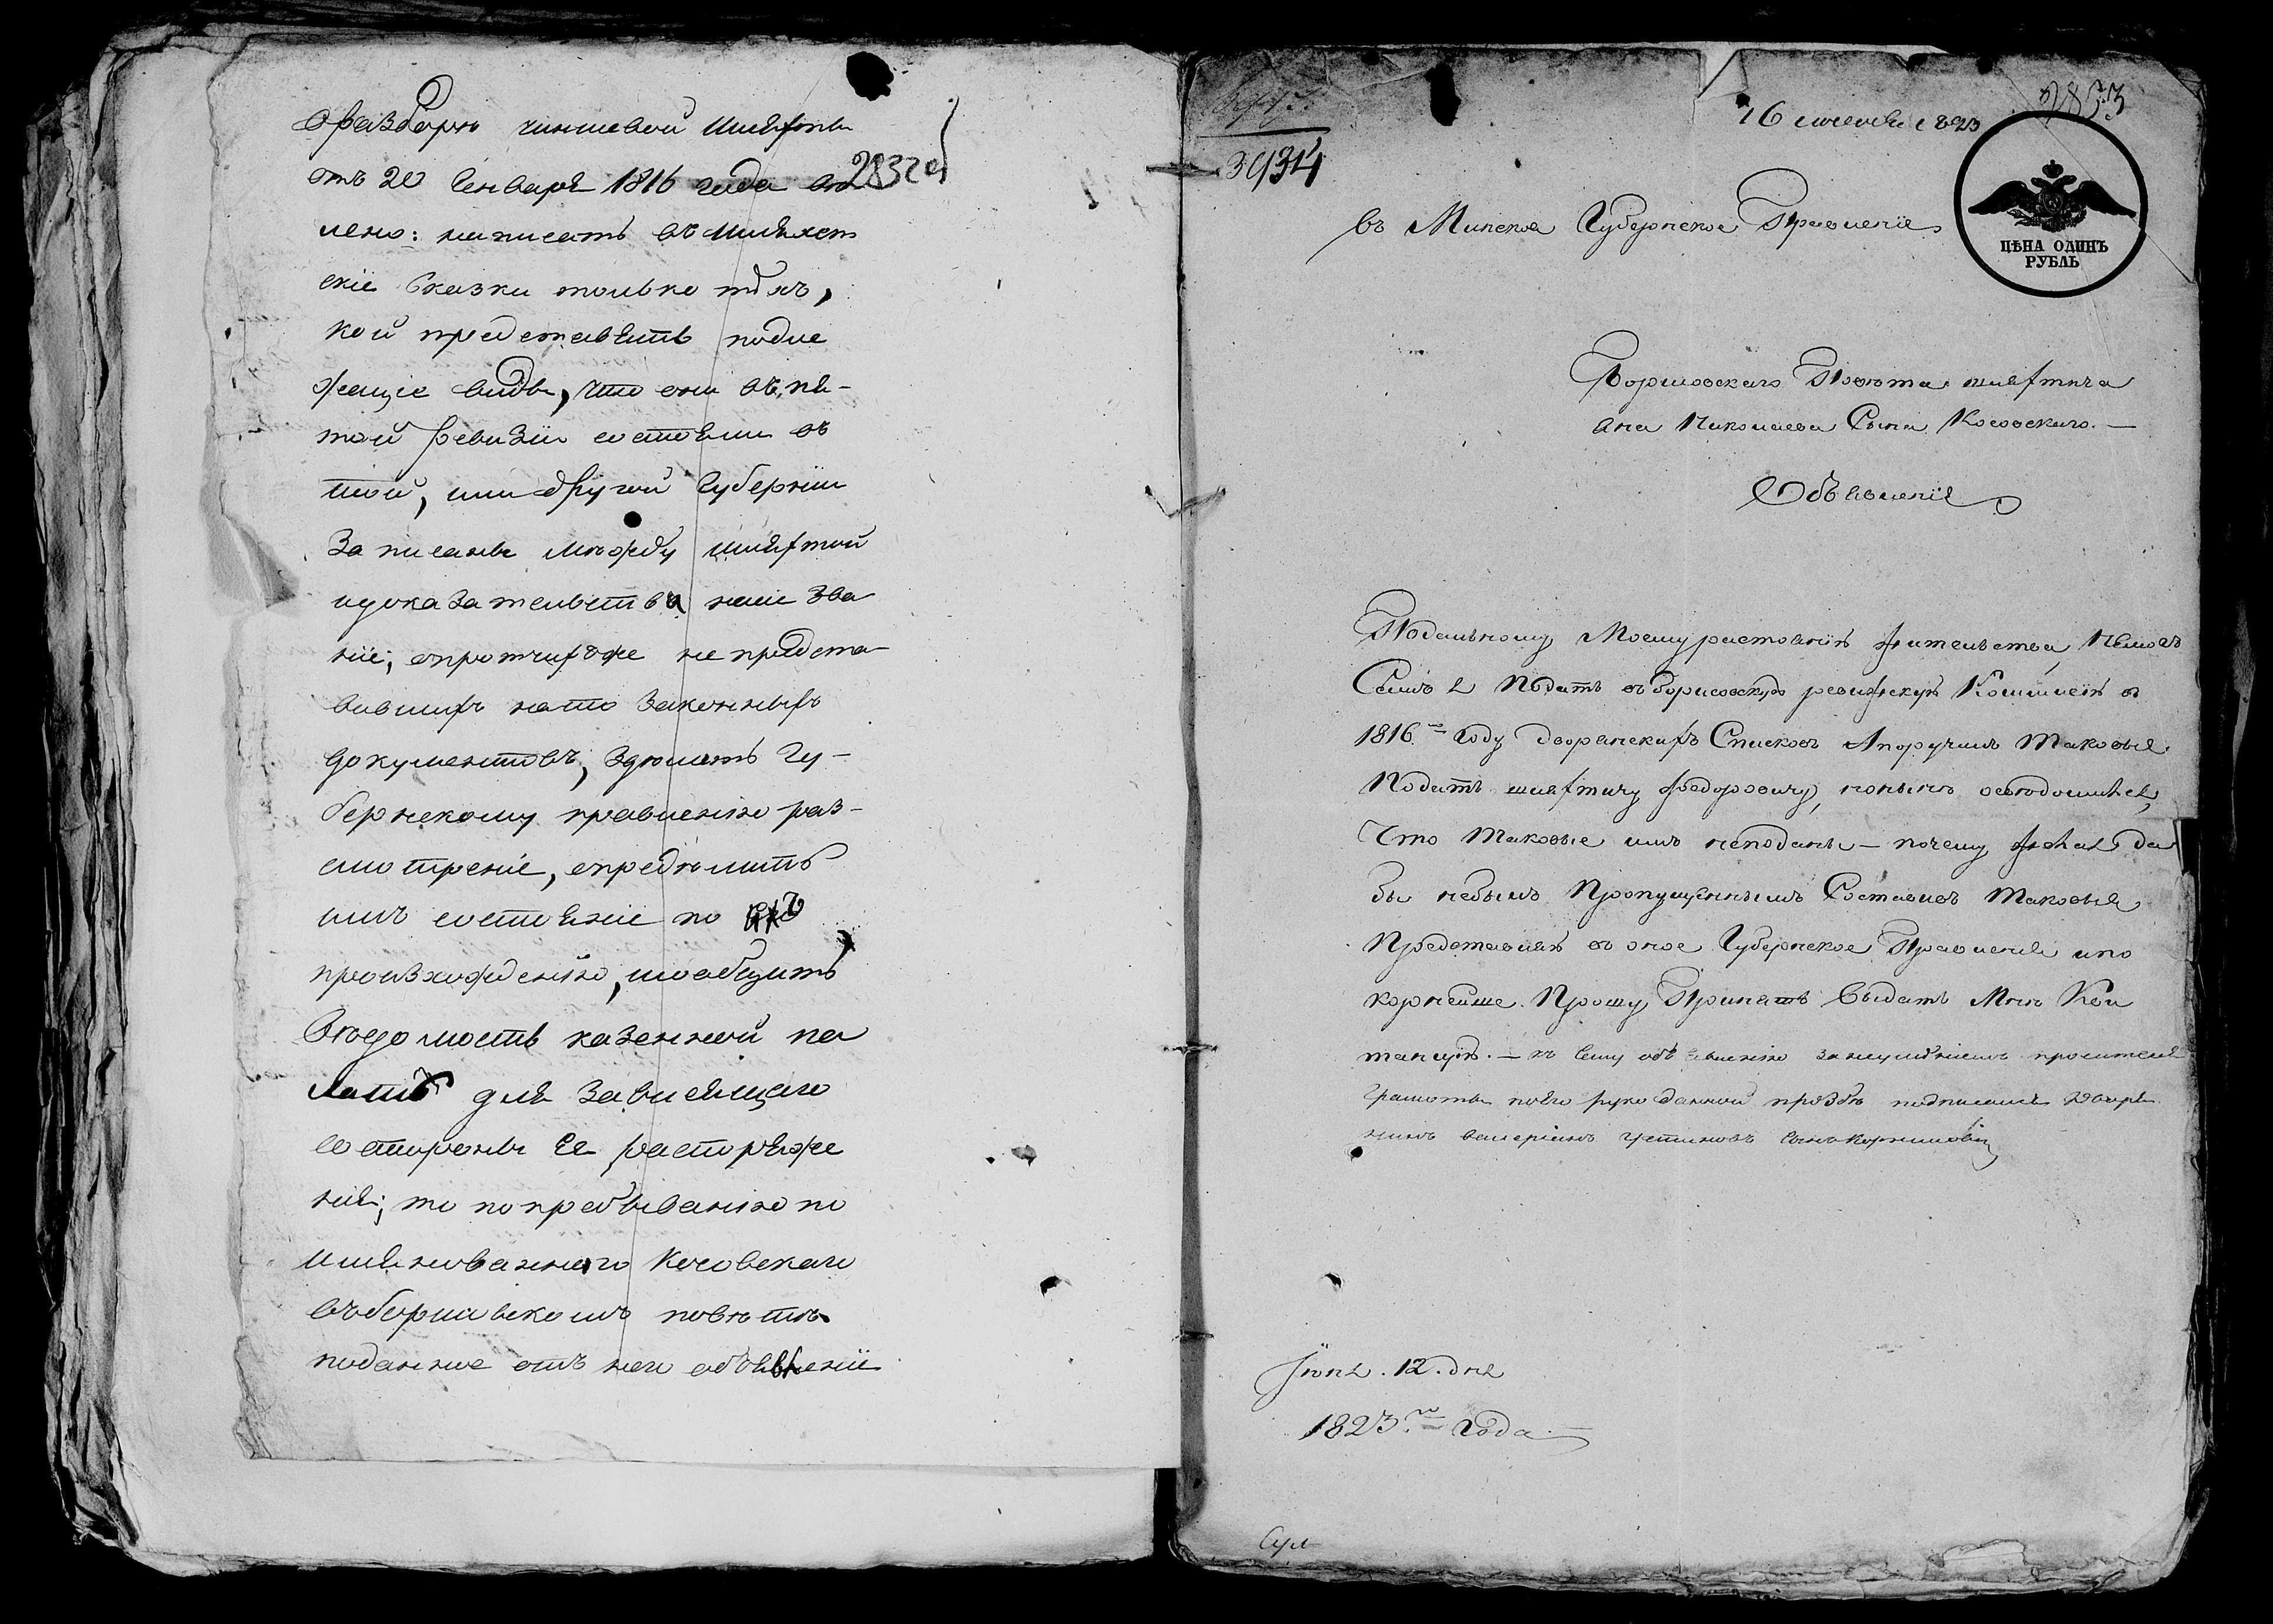 оразборѣ чиншевой шляхты
отъ 20 Генваря 1816 года ве
лено: написать въ шляхет
скіе сказки только тѣхъ,
кои представятъ подле
жащіе виды, что они въ пя-
той ревизіи состояли въ
той, или другой Губерніи
записаны между шляхтой
идоказательства наіе зва
ніе; опротчихъже не предста-
вившихъ нато законныхъ
документовъ, зделать Гу-
бернскому правленію раз-
смотреніе, определить
имъ состояніе по ихъ
произхожденію, исообщить
Вѣдомость казенной па
латѣ для зависящаго
состороны Ея распоряже
нія; то попребыванію по
имянованного Косовскаго
въборисовскомъ повѣтѣ
поданное отъ него объявленіе
2832 об
2853
39314
16 1823
въ Минское Губернское Правленіе
ЦѢНА ОДИНЪ
РУБЛЬ
Борисовскаго Повѣта шляхтича
Ана Николаева Сына Косовскаго.—
Объявленіе
Подальному Моему растоянію жительства, Немогъ
Самъ я Подать въ борисовскую ревизскую Комисію въ
1816.го Году дворянскихъ Списковъ Апоручилъ таковыя
Подать шляхтичу Федоровичу, нонынѣ освѣдомился,
Что таковые имъ неподаны — почему желая да
бы небылъ Пропущеннымъ Составивъ таковыя
Представляя въ оное Губернское Правленіе ипо
корнейше Прошу Принять выдать Мнѣ Кви
танцію. — къ сему объявленію занеумѣніемъ просителя
грамоты поего рукоданной прозбѣ подписался дворя
нинъ валеріянъ Устиновъ сынъ Корниловичъ
Іюня. 12. дня
1823.го Года